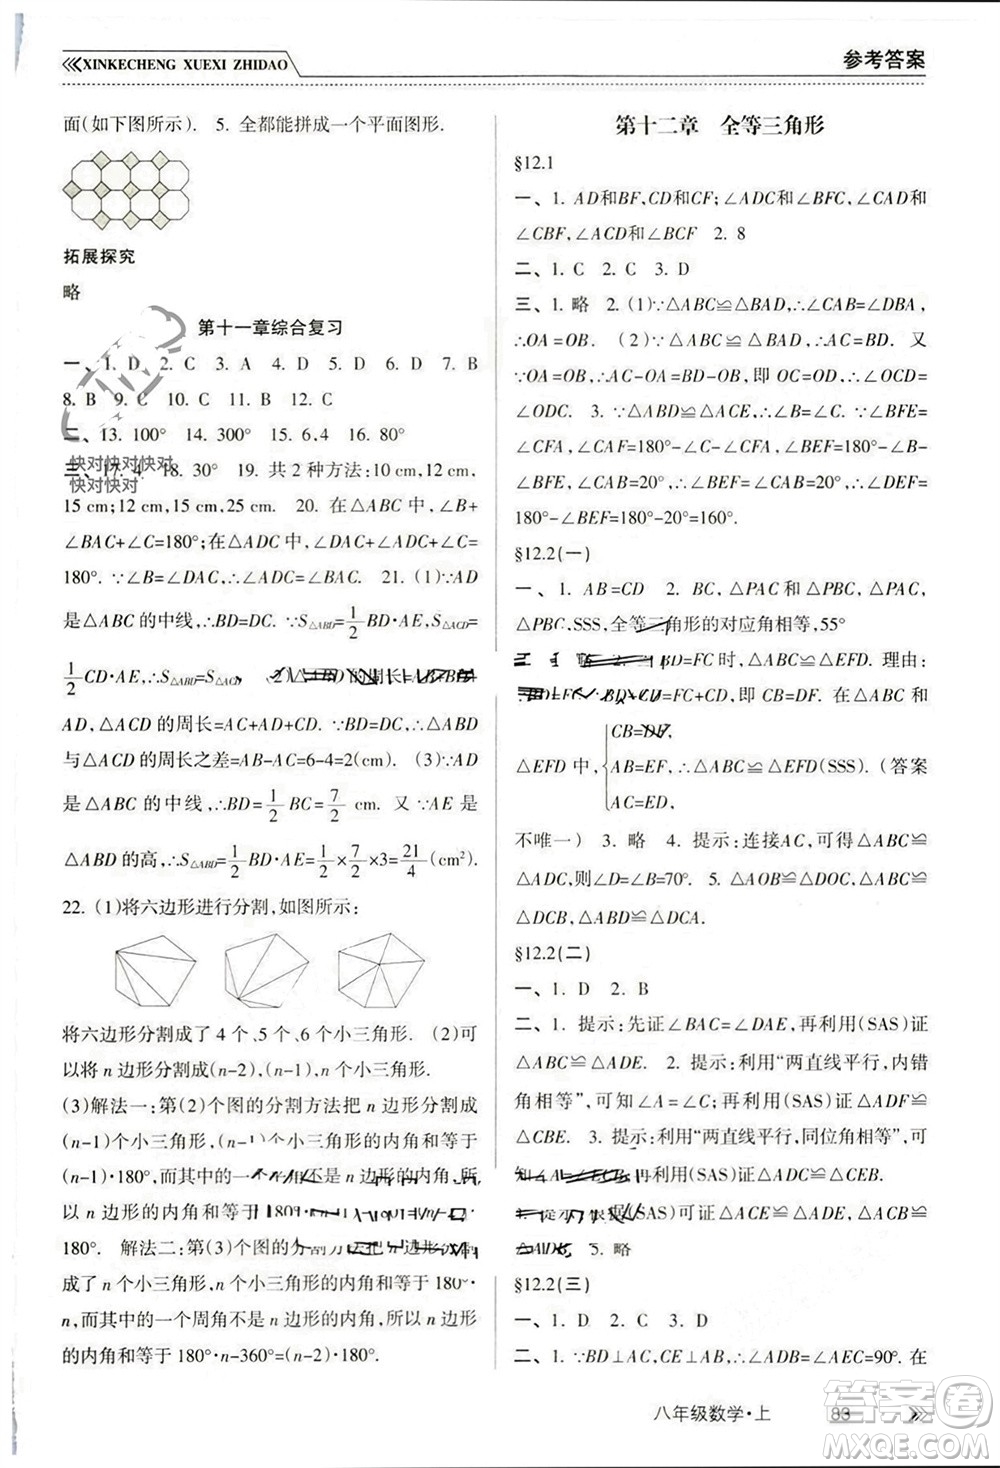 XINKECHENG XUEXI ZHIDAO
参考答案
面(如下图所示). 5. 全都能拼成一个平面图形.
拓展探究
略
第十一章综合复习
一、1. D 2. C 3. A 4. D 5. D 6. D 7. B
8. B 9. C 10. C 11. B 12. C
二、13. 100° 14. 300° 15. 6,4 16. 80°
三、17. 4 18. 30° 19. 共 2 种方法:10 cm,12 cm,
快对快对快对
快对快对
15 cm;12 cm,15 cm. 20. 在△ABC 中,∠B+
∠BAC+∠C=180°;在△ADC 中,∠B+∠DAC+∠C=
180°. ∵∠B=∠DAC,∴∠BAC=∠ADC. 21. (1)∵AD
是△ABC 的中线,∴BD=DC. ∵S△ABD=1/2 BD·AE,S△ADC=
1/2 CD·AE,∴S△ABD=S△ACD. (2)△ABD 的周长=AB+BD+
AD,△ACD 的周长=AC+AD+CD. ∵BD=DC,∴△ABD
与△ACD 的周长之差=AB-AC=6-4=2(cm). (3)∵AD
是△ABC 的中线,∴BD=1/2 BC=7/2 cm. 又∵AE 是
△ABD 的高,∴S△ABD=1/2 BD·AE=1/2×7/2×3=21/4(cm²).
22. (1)将六边形进行分割,如图所示:
将六边形分割成了 4 个、5 个、6 个小三角形. (2)可
以将 n 边形分割成(n-2),(n-1),n 个小三角形.
(3)解法一:第(2)个图的分割方法把 n 边形分割成
(n-1)个小三角形,(n-1)个小三角形的内角和等于(n-1)·
180°,而其中一个平角不是 n 边形的内角,所
以 n 边形的内角和等于
180°. 解法二:第(3)个图的分割方法把 n 边形分割
成 n 个小三角形,n 个小三角形的内角和等于 180°·
n,而其中的一个周角不是 n 边形的内角,所以 n 边形
的内角和等于 180°·n-360°=(n-2)·180°.
第十二章 全等三角形
§12.1
一、1. AD和BF,CD和CF;∠ADC和∠BFC,∠CAD和
∠CBF,∠ACD和∠BCF 2. 8
二、1. C 2. C 3. D
三、1. 略 2. (1)∵△ABC≌△BAD,∴∠CAB=∠DBA,
∴OA=OB. (2)∵△ABC≌△BAD,∴AC=BD. 又
∵OA=OB,∴AC-OA=BD-OB,即 OC=OD,∴∠OCD=
∠ODC. 3. ∵△ABF≌△ACE,∴∠BFA=∠CEA. ∵∠BFE=
∠CFA,∠CAF=180°-∠C-∠CFA,∠BEF=180°-∠B-
∠BFE,∠CAB=20°,∴∠CAF=∠CAB=20°,∴∠FEC=
180°-∠BEF=180°-20°=160°.
§12.2(一)
一、1. AB=CD 2. BC,△PAC 和△PBC,∠PAC,
∠PBC,SSS,全等三角形的对应角相等,55°
二、1. 略 2. BD=FC 时,△ABC≌△EFD. 理由:
∵BD=FC,∴BD+CD=FC+CD,即 CB=DF. 在△ABC 和
△EFD 中, CB=DF, AB=EF, AC=ED, ∴△ABC≌△EFD(SSS). (答案
不唯一) 3. 略 4. 提示:连接AC,可得△ABC≌
△ADC,则∠D=∠B=70°. 5. △AOB≌△DOC,△ABC≌
△DCB,△ABD≌△DCA.
§12.2(二)
一、1. D 2. B
二、1. 提示:先证∠BAC=∠DAE,再利用(SAS)证
△ABC≌△ADE. 2. 提示:利用“两直线平行,内错
角相等”,可知∠A=∠C;再利用(SAS)证△ADF≌
△CBE. 3. 提示:利用“两直线平行,同位角相等”,可
知∠A=∠ECB,再利用(SAS)证△ADC≌△CEB.
4. 提示:根据(SAS)可证△ACE≌△ADE,△ABC≌
△ABD. 5. 略
§12.2(三)
一、1. D 2. C 3. D
二、1. ∵BD⊥AC,CE⊥AB,∴∠ADB=∠AEC=90°. 在
八年级数学·上
83
答案圈
MXQE.COM